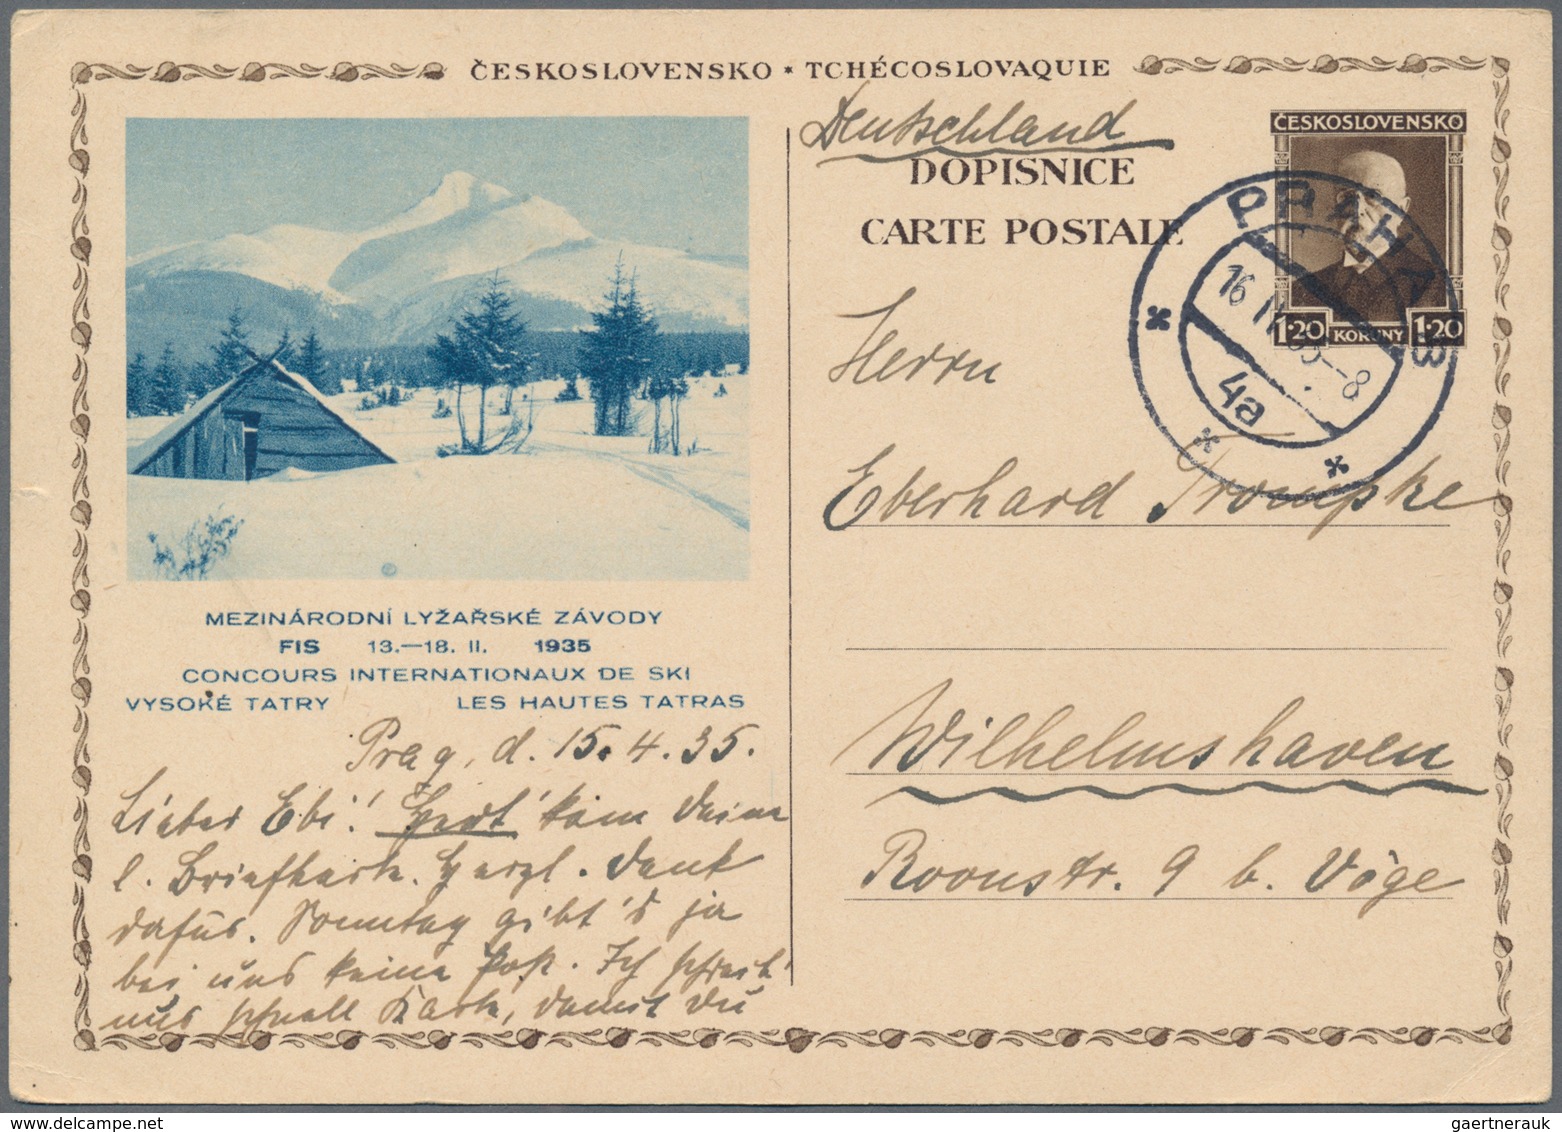 ČESKOSLOVENSKO * TCHÉCOSLOVAQUIE
Deutschland
DOPISNICE
CARTE POSTALE
ČESKOSLOVENSKO
1·20 KORUNY 1·20
PRAHA 8
16 35-8
4a
MEZINÁRODNÍ LYŽAŘSKÉ ZÁVODY
FIS 13.—18. II. 1935
CONCOURS INTERNATIONAUX DE SKI
VYSOKÉ TATRY LES HAUTES TATRAS
Prag, d. 15.4.35.
Lieber Ebi! kam Deine
l. Briefkarte. Herzl. Dank
dafür. Sonntag gibt's ja
bei uns keine Post. Ich schreib'
nur schnell Karte, damit Du
Herrn
Eberhard Trompke
Wilhelmshaven
Roonstr. 9 b. Vöge
gaertnerauk